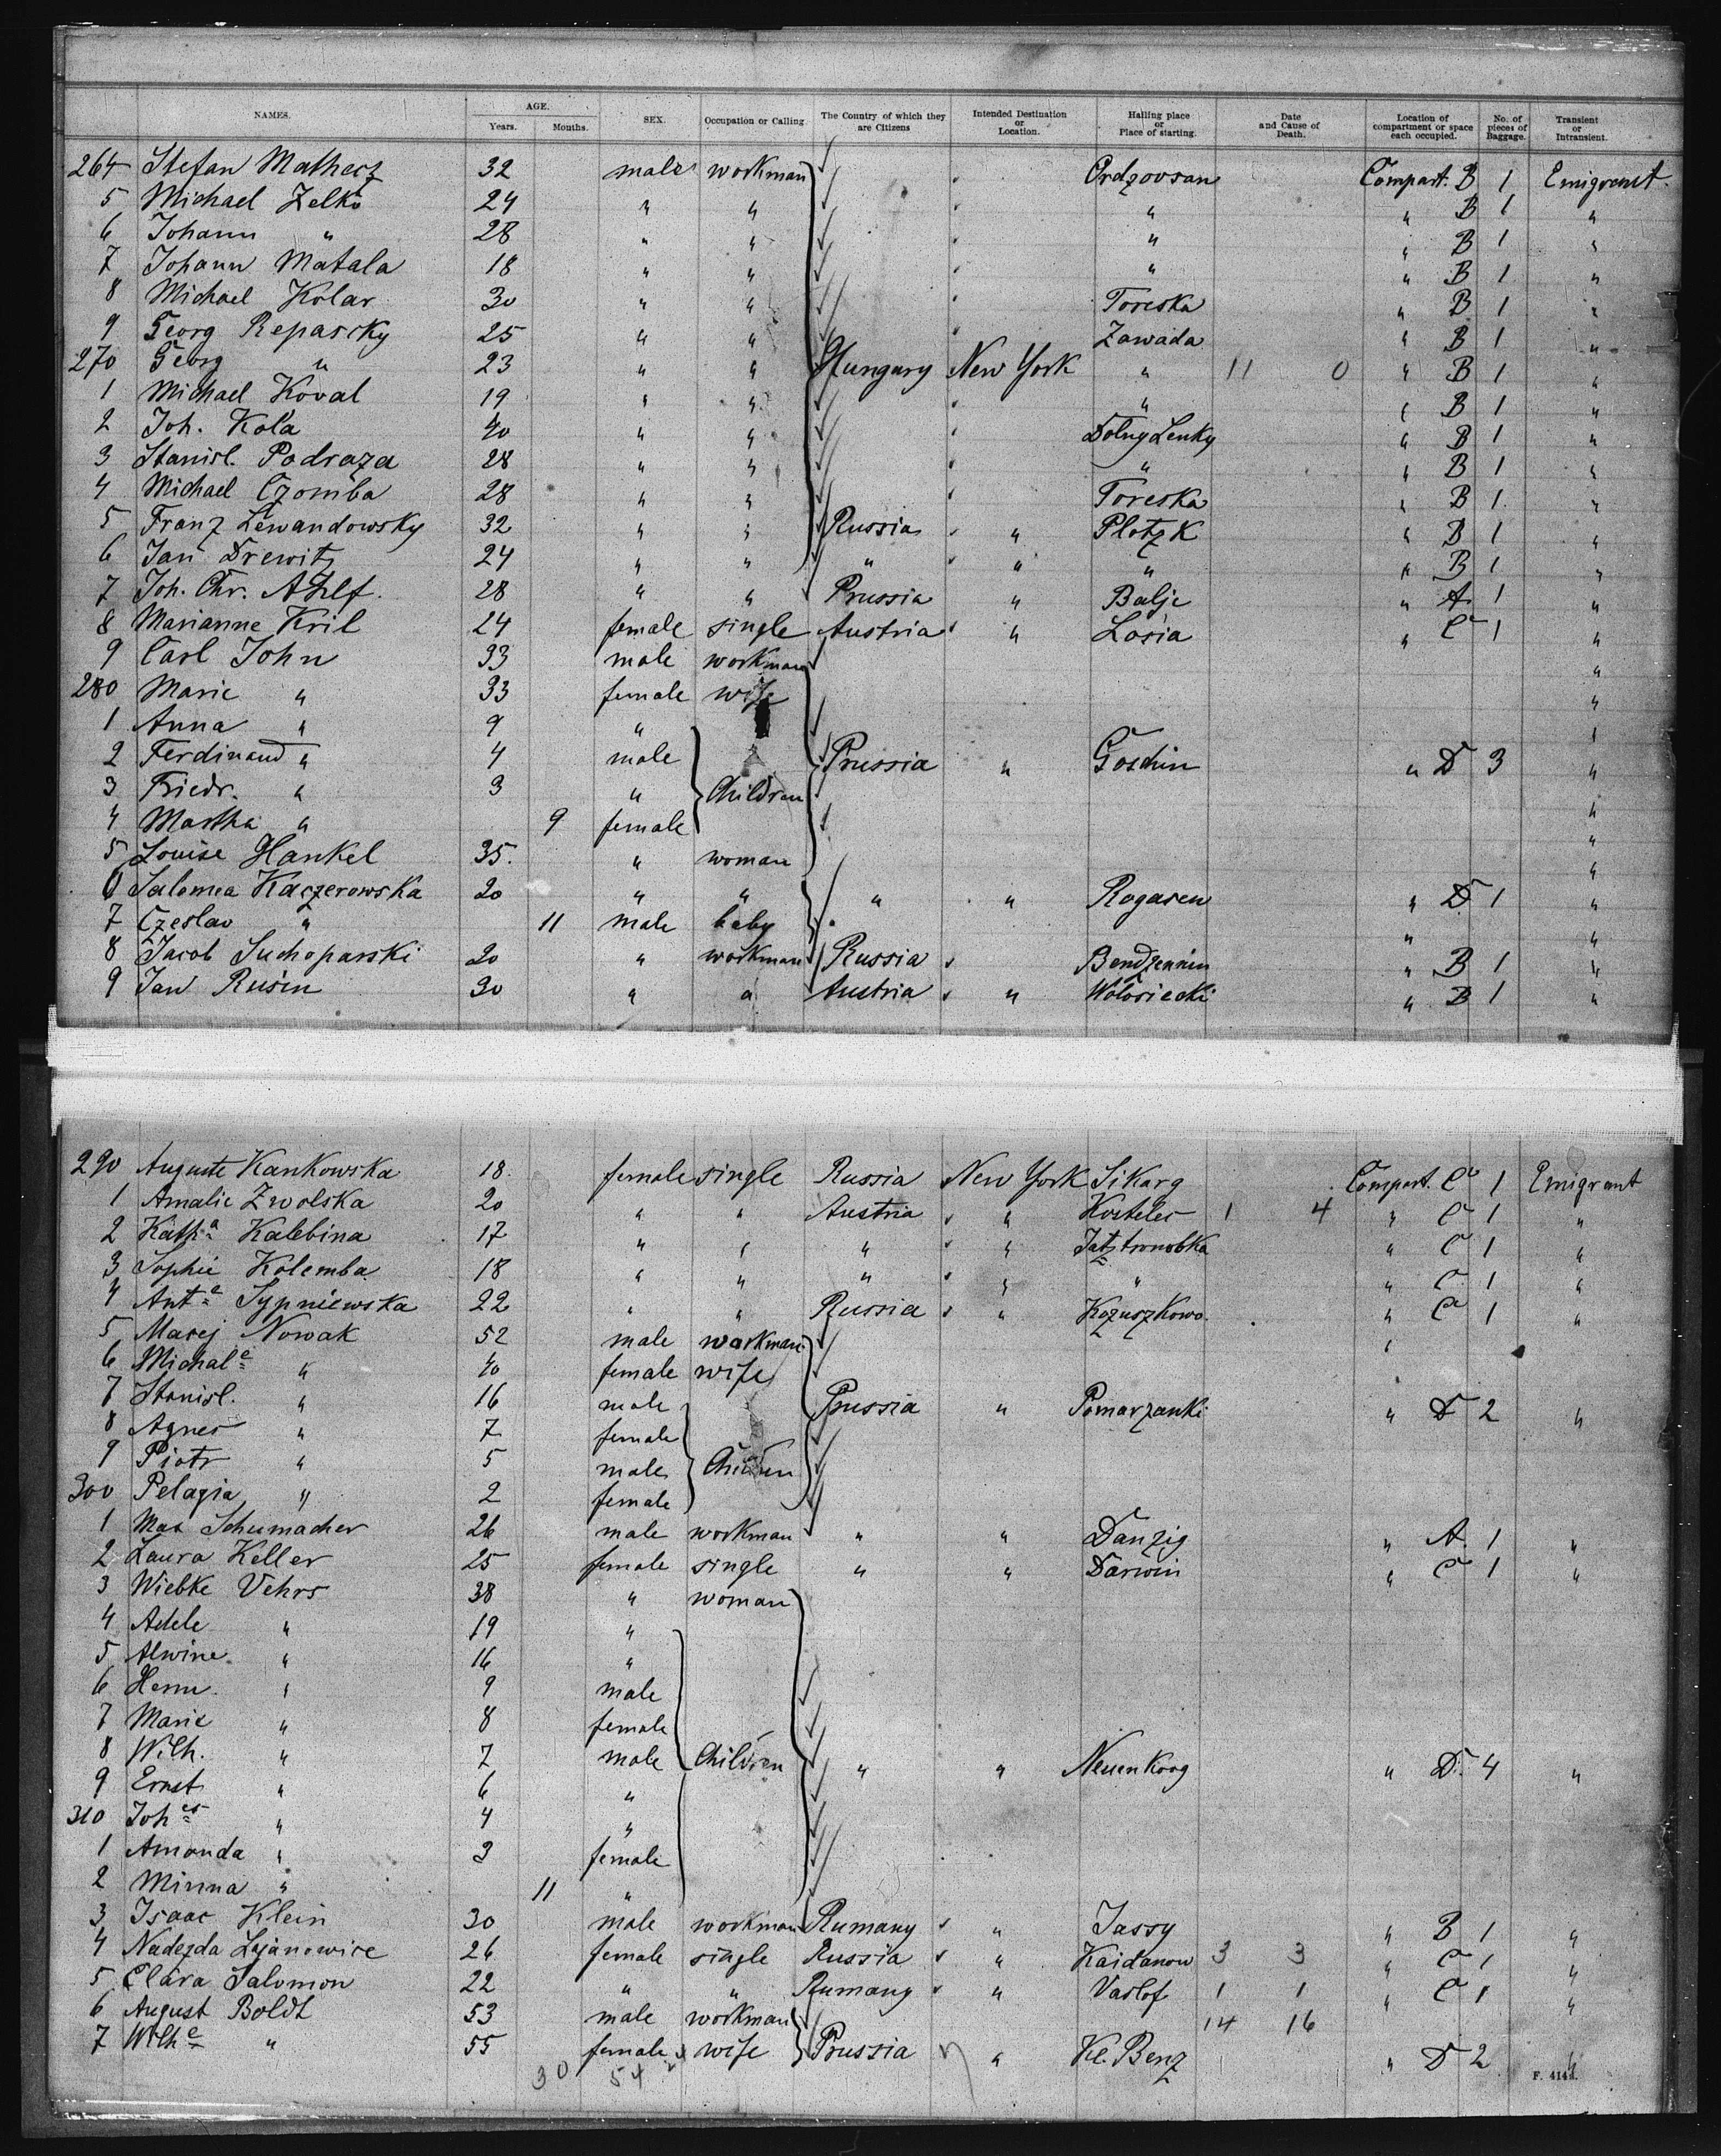 NAMES. AGE. Years. Months. SEX. Occupation or Calling. The Country of which they are Citizens Intended Destination or Location. Hailing place or Place of starting. Date and Cause of Death. Location of compartment or space each occupied. No. of pieces of Baggage. Transient or Intransient.
264 Stefan Mathecz 32 male workman Ordzovsan Compart. B 1 Emigrant
5 Michael Zelko 24 " " " " B 1 "
6 Johann " 28 " " " " B 1 "
7 Johann Matala 18 " " " " B 1 "
8 Michael Kolar 30 " " Toreska " B 1 "
9 Georg Repascky 25 " " Zawada " B 1 "
270 Georg " 23 " " Hungary New York " 11 0 " B 1 "
1 Michael Koval 19 " " " " B 1 "
2 Joh. Kola 40 " " Dolny Lenky " B 1 "
3 Stanisl. Podraza 28 " " " " B 1 "
4 Michael Czomba 28 " " Toreska " B 1 "
5 Franz Lewandowsky 32 " " Russia " Plotzk " B 1 "
6 Jan Drewitz 24 " " " " " " B 1 "
7 Joh. Chr. Ahlf. 28 " " Prussia " Balje " A 1 "
8 Marianne Kril 24 female single Austria " Losia " C 1 "
9 Carl John 33 male workman "
280 Marie " 33 female wife "
1 Anna " 9 " "
2 Ferdinand " 4 male Prussia " Goschin " D 3 "
3 Friedr. " 3 " Children "
4 Martha " 9 female "
5 Louise Hankel 35. " woman "
6 Salomea Kaczerowska 20 " " " " Rogasen " D 1 "
7 Czeslav " 11 male baby " "
8 Jacob Suchoparski 20 " workman Russia Bendzennin " B 1 "
9 Jan Rusin 30 " " Austria " Wolosiecki " B 1 "
290 Auguste Kankowska 18. female single Russia New York Sikarg Compart. C 1 Emigrant
1 Amalie Zwolska 20 " " Austria " Kosteles 1 4 " C 1 "
2 Kath.a Kalebina 17 " " " " Jatztronobka " C 1 "
3 Sophie Kolemba 18 " " " " " " C 1 "
4 Ant.e Sypniewska 22 " " Russia " Kozuszkowo. " C 1 "
5 Macej Nowak 52 male workman "
6 Michal.e " 40 female wife
7 Stanisl. " 16 male Prussia " Pomarzanki " D 2 "
8 Agnes " 7 female
9 Piotr " 5 male Children
300 Pelagia " 2 female
1 Max Schumacher 26 male workman " " Danzig " A 1 "
2 Laura Keller 25 female single " " Darwin " C 1 "
3 Wiebke Vehrs 38 " woman
4 Adele " 19 "
5 Alwine " 16 "
6 Herm. " 9 male
7 Marie " 8 female
8 Wilh. " 7 male Children " " Neuenkoog " D. 4 "
9 Ernst " 6 "
310 Joh.es " 4 "
1 Amanda " 3 female
2 Minna " 11 "
3 Isaac Klein 30 male workman Rumany " Jassy " B 1 "
4 Nadezda Lejanowice 26 female single Russia " Kaidanow 3 3 " C 1 "
5 Clara Salomon 22 " " Rumany " Vaslof 1 1 " C 1 "
6 August Boldt 53 male workman 14 16 "
7 Wilh.e " 55 female wife Prussia " Kl. Benz " D 2 "
30 54
F. 414d.